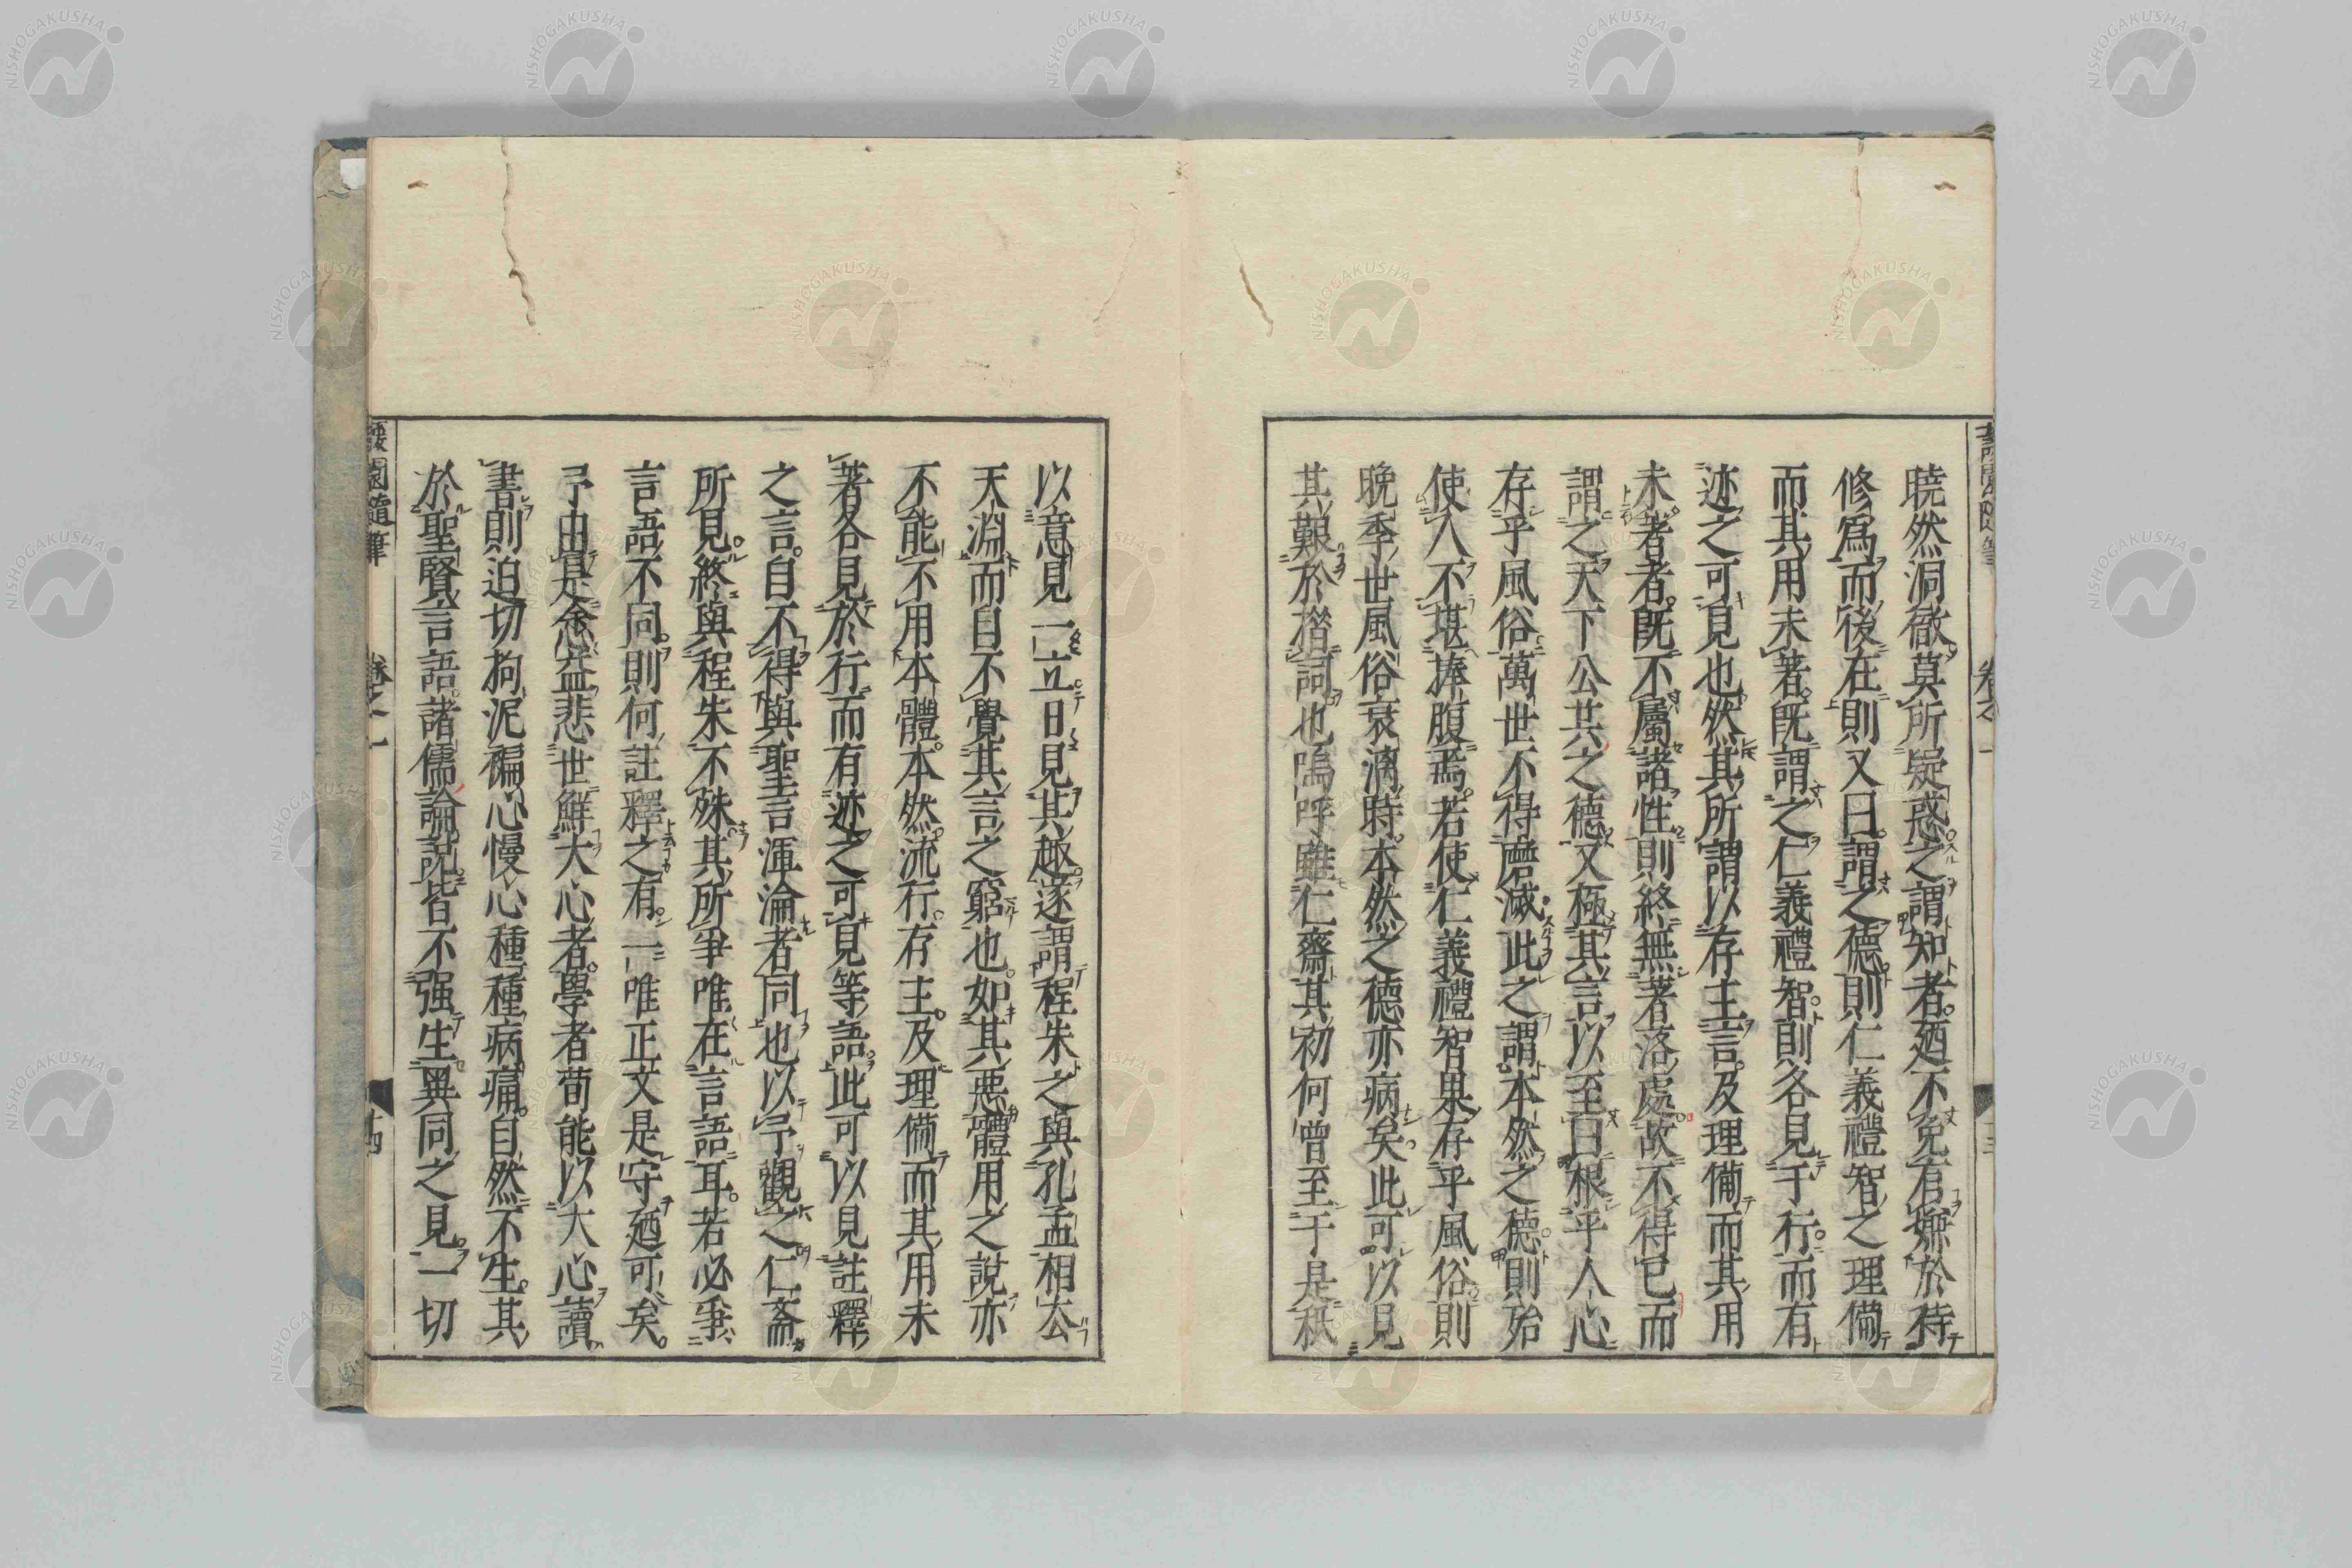 曉然洞徹莫所疑惑之謂知者。廼不免有嫌於待
修爲而後在則又曰。謂之德則仁義禮智之理備
而其用未著。既謂之仁義禮智。則各見于行。而有
迹之可見也然其所謂以存主言。及理備而其用
未著者。既不屬諸性。則終無著落處。故不得已而
謂之天下公共之德。又極其言以至曰根乎人心
存乎風俗萬世不得磨滅。此之謂本然之德。則殆
使人不堪捧腹焉。若使仁義禮智果存乎風俗則
晩季世風俗衰漓時。本然之德亦病矣。此可以見
其艱於措詞也嗚呼雖仁齋其初何曾至于是秖
以意見一立。日見其趣。遂謂程朱之與孔孟相去
天淵而自不覺其言之窮也。如其惡體用之說亦
不能不用本體。本然。流行。存主。及理備而其用未
著各見於行而有迹之可見等語。此可以見註釋
之言。自不得與聖言渾淪者同也以予觀之仁齋
所見。終與程朱不殊其所爭唯在言語耳。若必爭
言語不同。則何註釋之有。一唯正文是守廼可矣。
予由是念益悲世鮮大心者。學者苟能以大心讀
書則迫切拘泥褊心慢心種種病痛。自然不生。其
於聖賢言語。諸儒論說。皆不强生異同之見。一切
蘐園隨筆
卷之一
十四
NISHOGAKUSHA